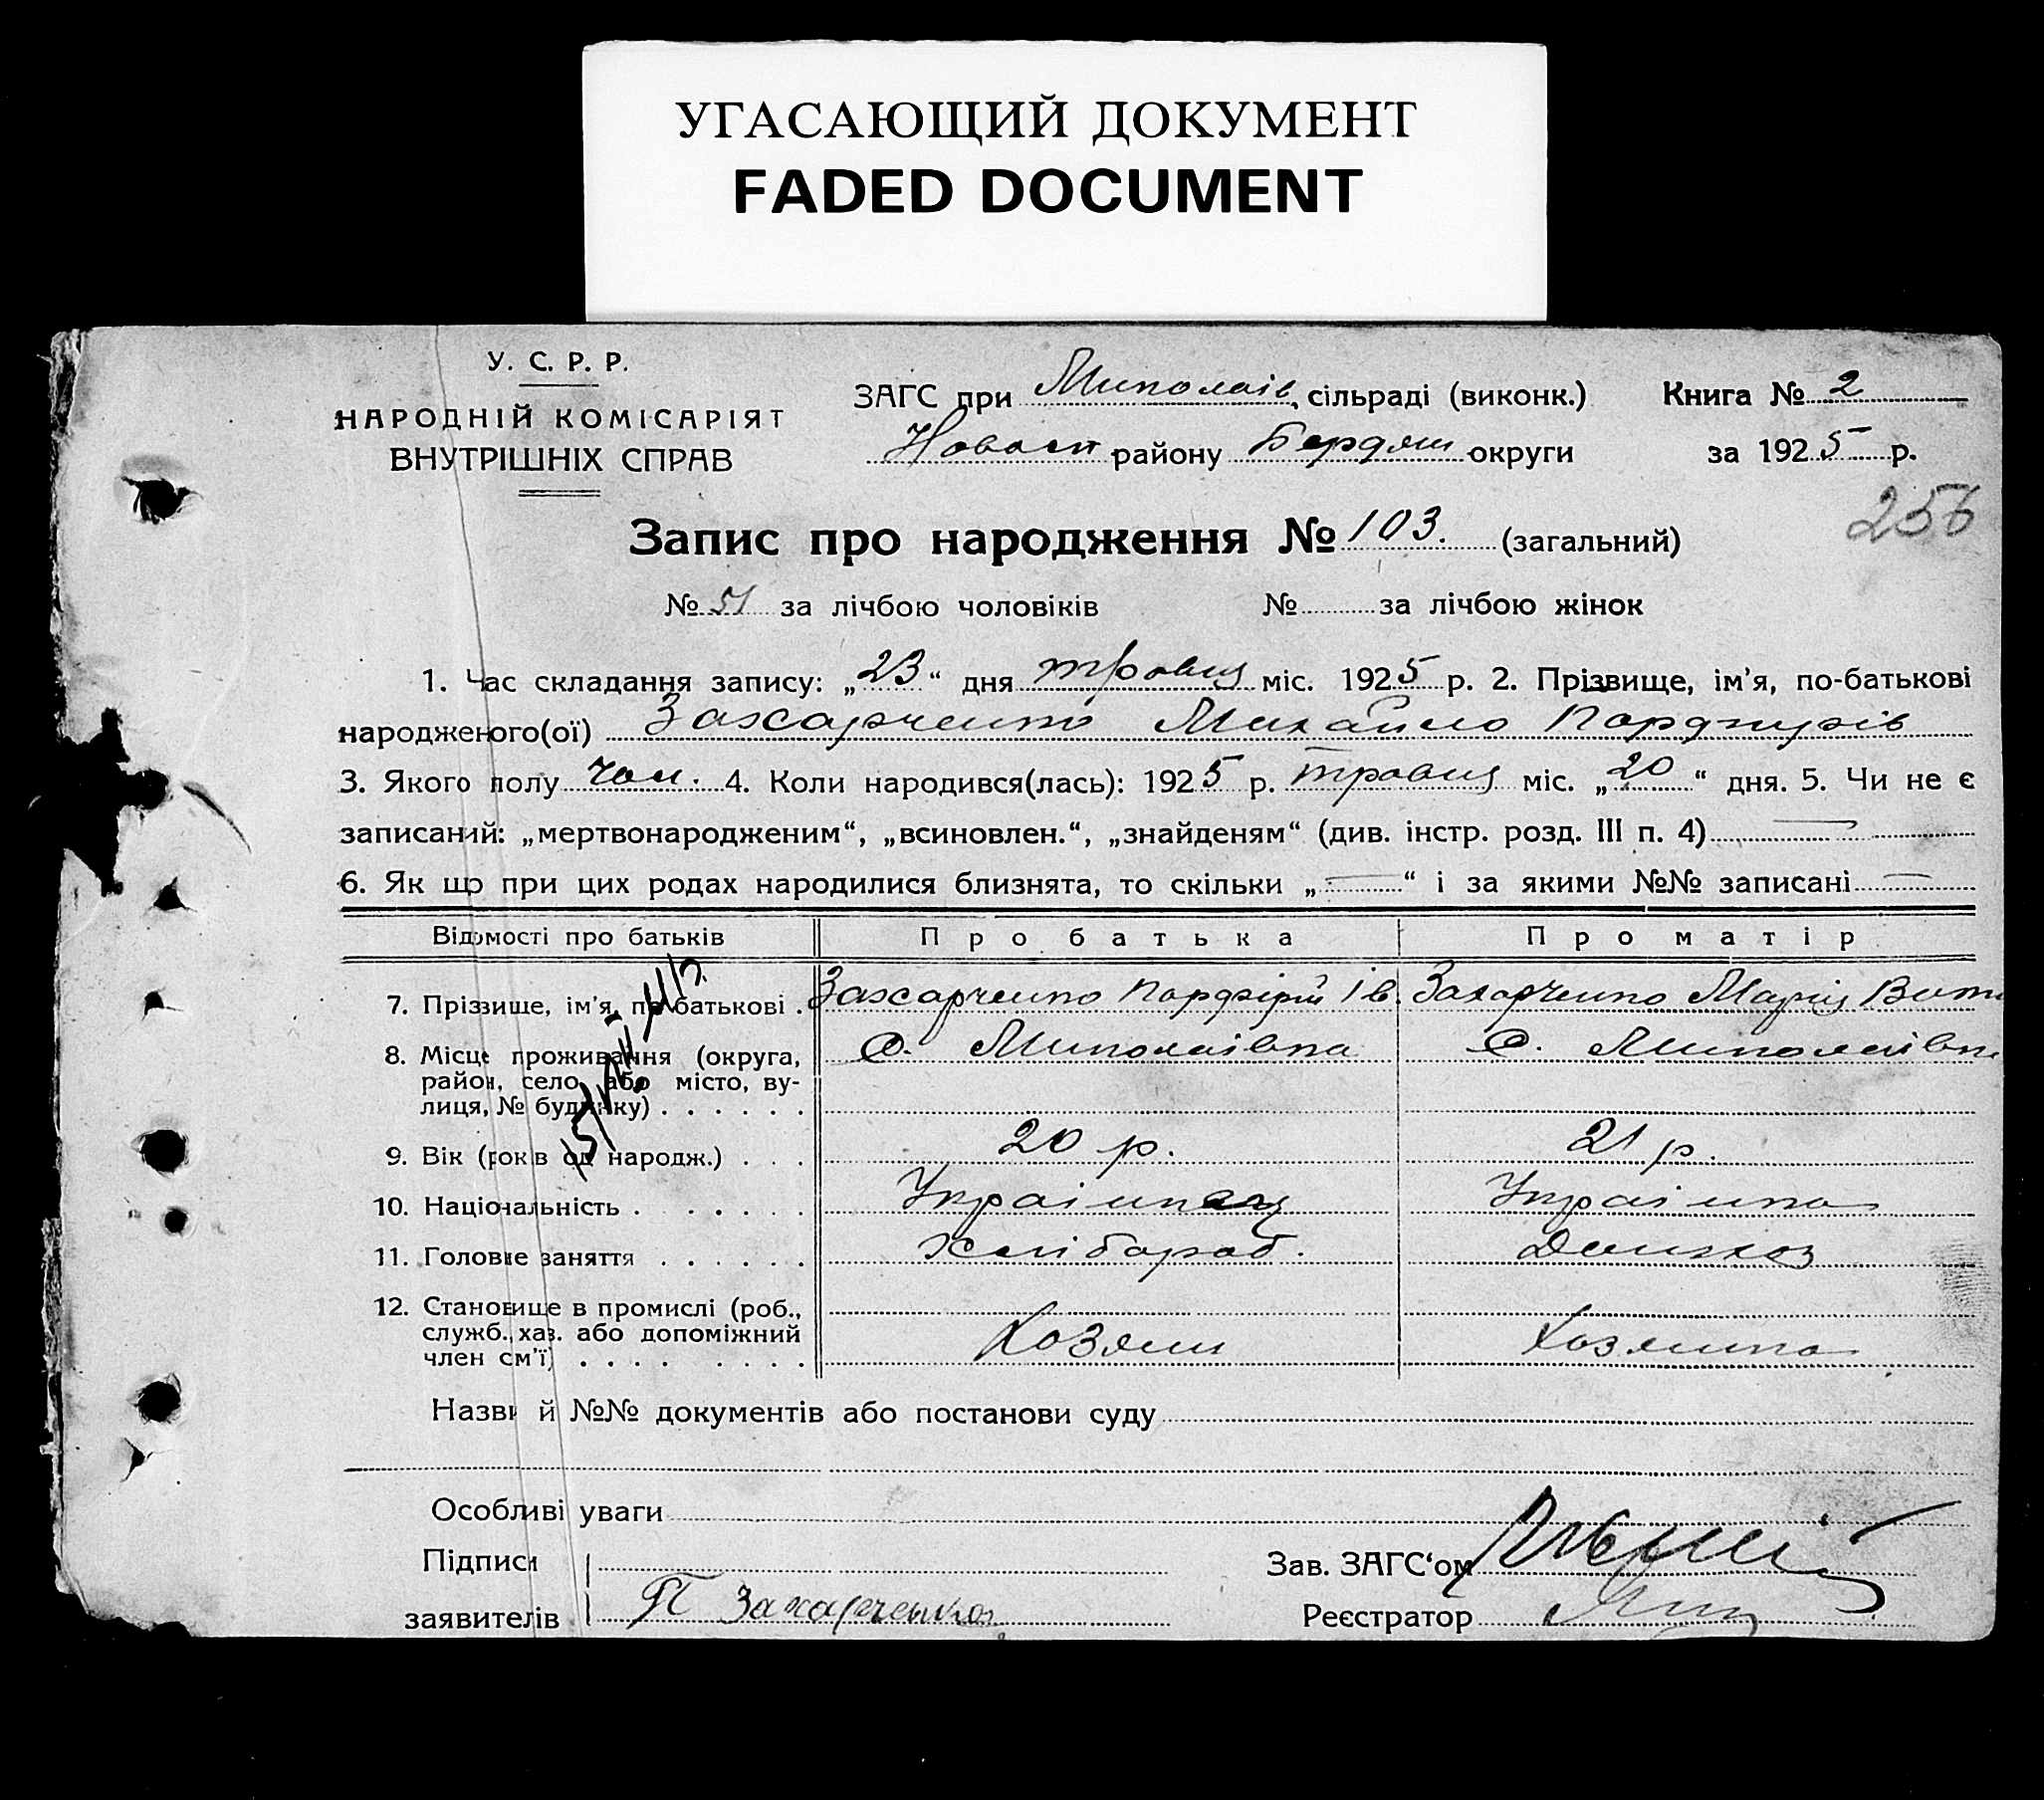 УГАСАЮЩИЙ ДОКУМЕНТ
FADED DOCUMENT
У. С. Р. Р.
НАРОДНІЙ КОМІСАРІЯТ
ВНУТРІШНІХ СПРАВ
ЗАГС при Миколаїв. сільраді (виконк.)
Новосп районy Бердян округи
Книга № 2
за 1925 р.
256
Запис про народження № 103. (загальний)
№ 51 за лічбою чоловіків № за лічбою жінок
1. Час складання запису: „23“ дня травня міс. 1925 р. 2. Прізвище, ім'я, по-батькові
народженого(ої) Захарченко Михайло
3. Якого полу чол. 4. Коли народився(лась): 1925 р. травня міс. „20“ дня. 5. Чи не є
записаний: „мертвонародженим“, „всиновлен.“, „знайденям“ (див. інстр. розд. III п. 4) —
6. Як що при цих родах народилися близнята, то скільки „—“ і за якими №№ записані —
Відомості про батьків Про батька Про матір
7. Прізвище, ім'я, по батькові . Захарченко Порфірій Ів. Захарченко Марія
8. Місце проживання (округа, с. Миколаївка с. Миколаївка
район, село або місто, ву-
лиця, № будинку) . . . . . .
9. Вік (років од народж.) . . . 20 р. 21 р.
10. Національність . . . . . . Українець Українка
11. Головне заняття . . . . . . Хлібороб. Домхоз
12. Становище в промислі (роб.,
служб., хаз. або допоміжний Хозяин Хозяика
член см'ї) . . . . . . . .
Назви й №№ документів або постанови суду
Особливі уваги
Підписи
Зав. ЗАГС‘ом
заявителів П Захарченко
Реєстратор